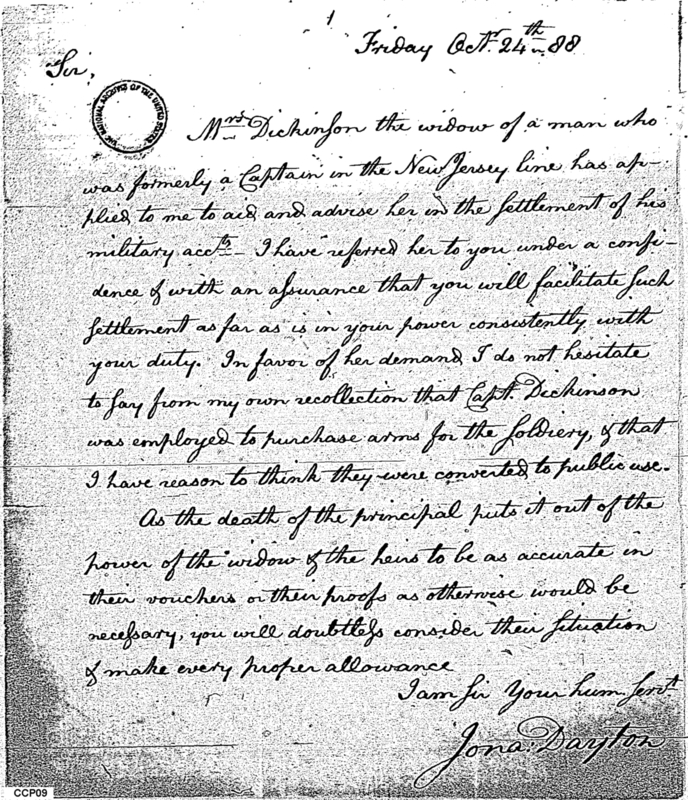 1
Friday Octr. 24th. 88
Sir,
THE NATIONAL ARCHIVES OF THE UNITED STATES
Mrs. Dickinson the widow of a man who
was formerly a Captain in the New Jersey line has ap-
plied to me to aid and advise her in the settlement of his
military accts.- I have referred her to you under a confi-
dence & with an assurance that you will facilitate such
settlement as far as is in your power consistently with
your duty. In favor of her demand I do not hesitate
to say from my own recollection that Capt. Dickinson
was employed to purchase arms for the soldiery, & that
I have reason to think they were converted to public use.
As the death of the principal puts it out of the
power of the widow & the heirs to be as accurate in
their vouchers or their proofs as otherwise would be
necessary, you will doubtless consider their situation
& make every proper allowance
I am Sir Your hum. Servt.
Jona: Dayton
CCP09